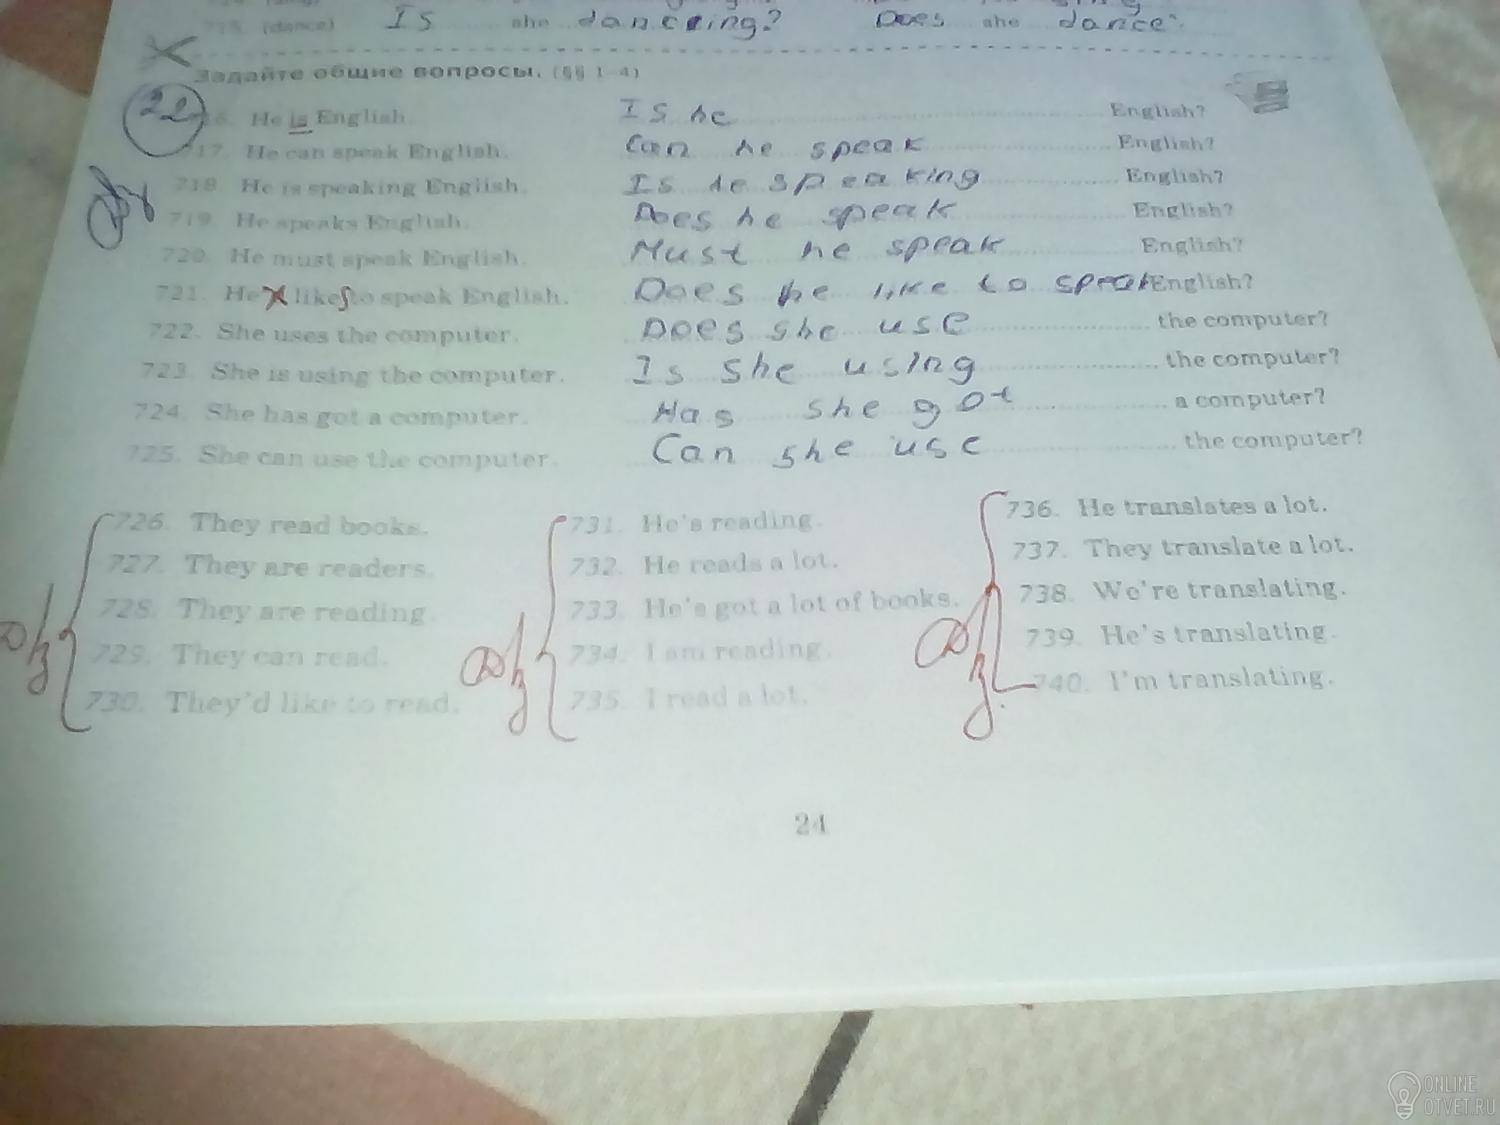 (dance) Is she danceing? Does she dance?
Задайте общие вопросы. (§§ 1-4)
22 He is English. Is he English?
717. He can speak English. Can he speak English?
718. He is speaking English. Is he speaking English?
719. He speaks English. Does he speak English?
720. He must speak English. Must he speak English?
721. He likes to speak English. Does he like to speak English?
722. She uses the computer. Does she use the computer?
723. She is using the computer. Is she using the computer?
724. She has got a computer. Has she got a computer?
725. She can use the computer. Can she use the computer?
726. They read books. 731. He's reading. 736. He translates a lot.
727. They are readers. 732. He reads a lot. 737. They translate a lot.
728. They are reading. 733. He's got a lot of books. 738. We're translating.
729. They can read. 734. I am reading. 739. He's translating.
730. They'd like to read. 735. I read a lot. 740. I'm translating.
24
ONLINE
OTVET.RU